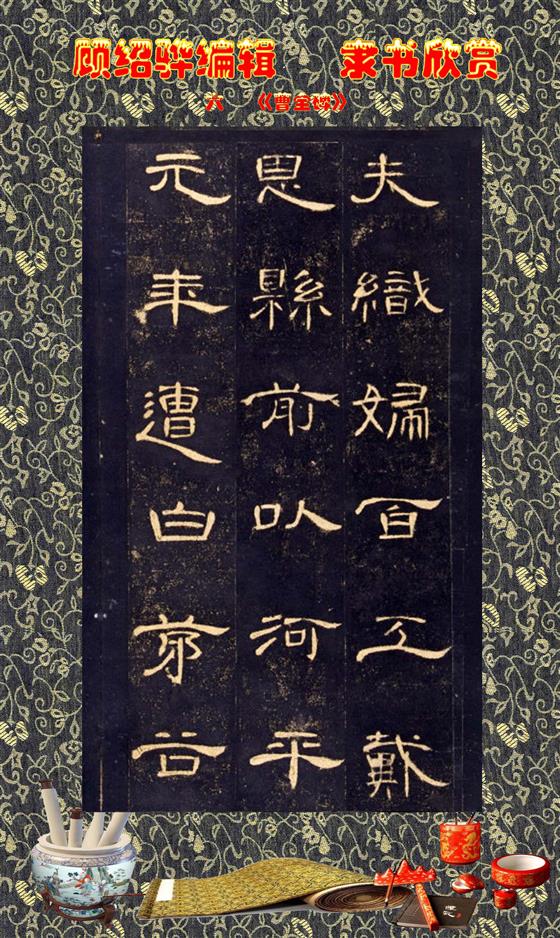 顾绍骅编辑 隶书欣赏
六 《曹全碑》
夫織婦百工戴
恩縣前以河平
元年遭白茅谷